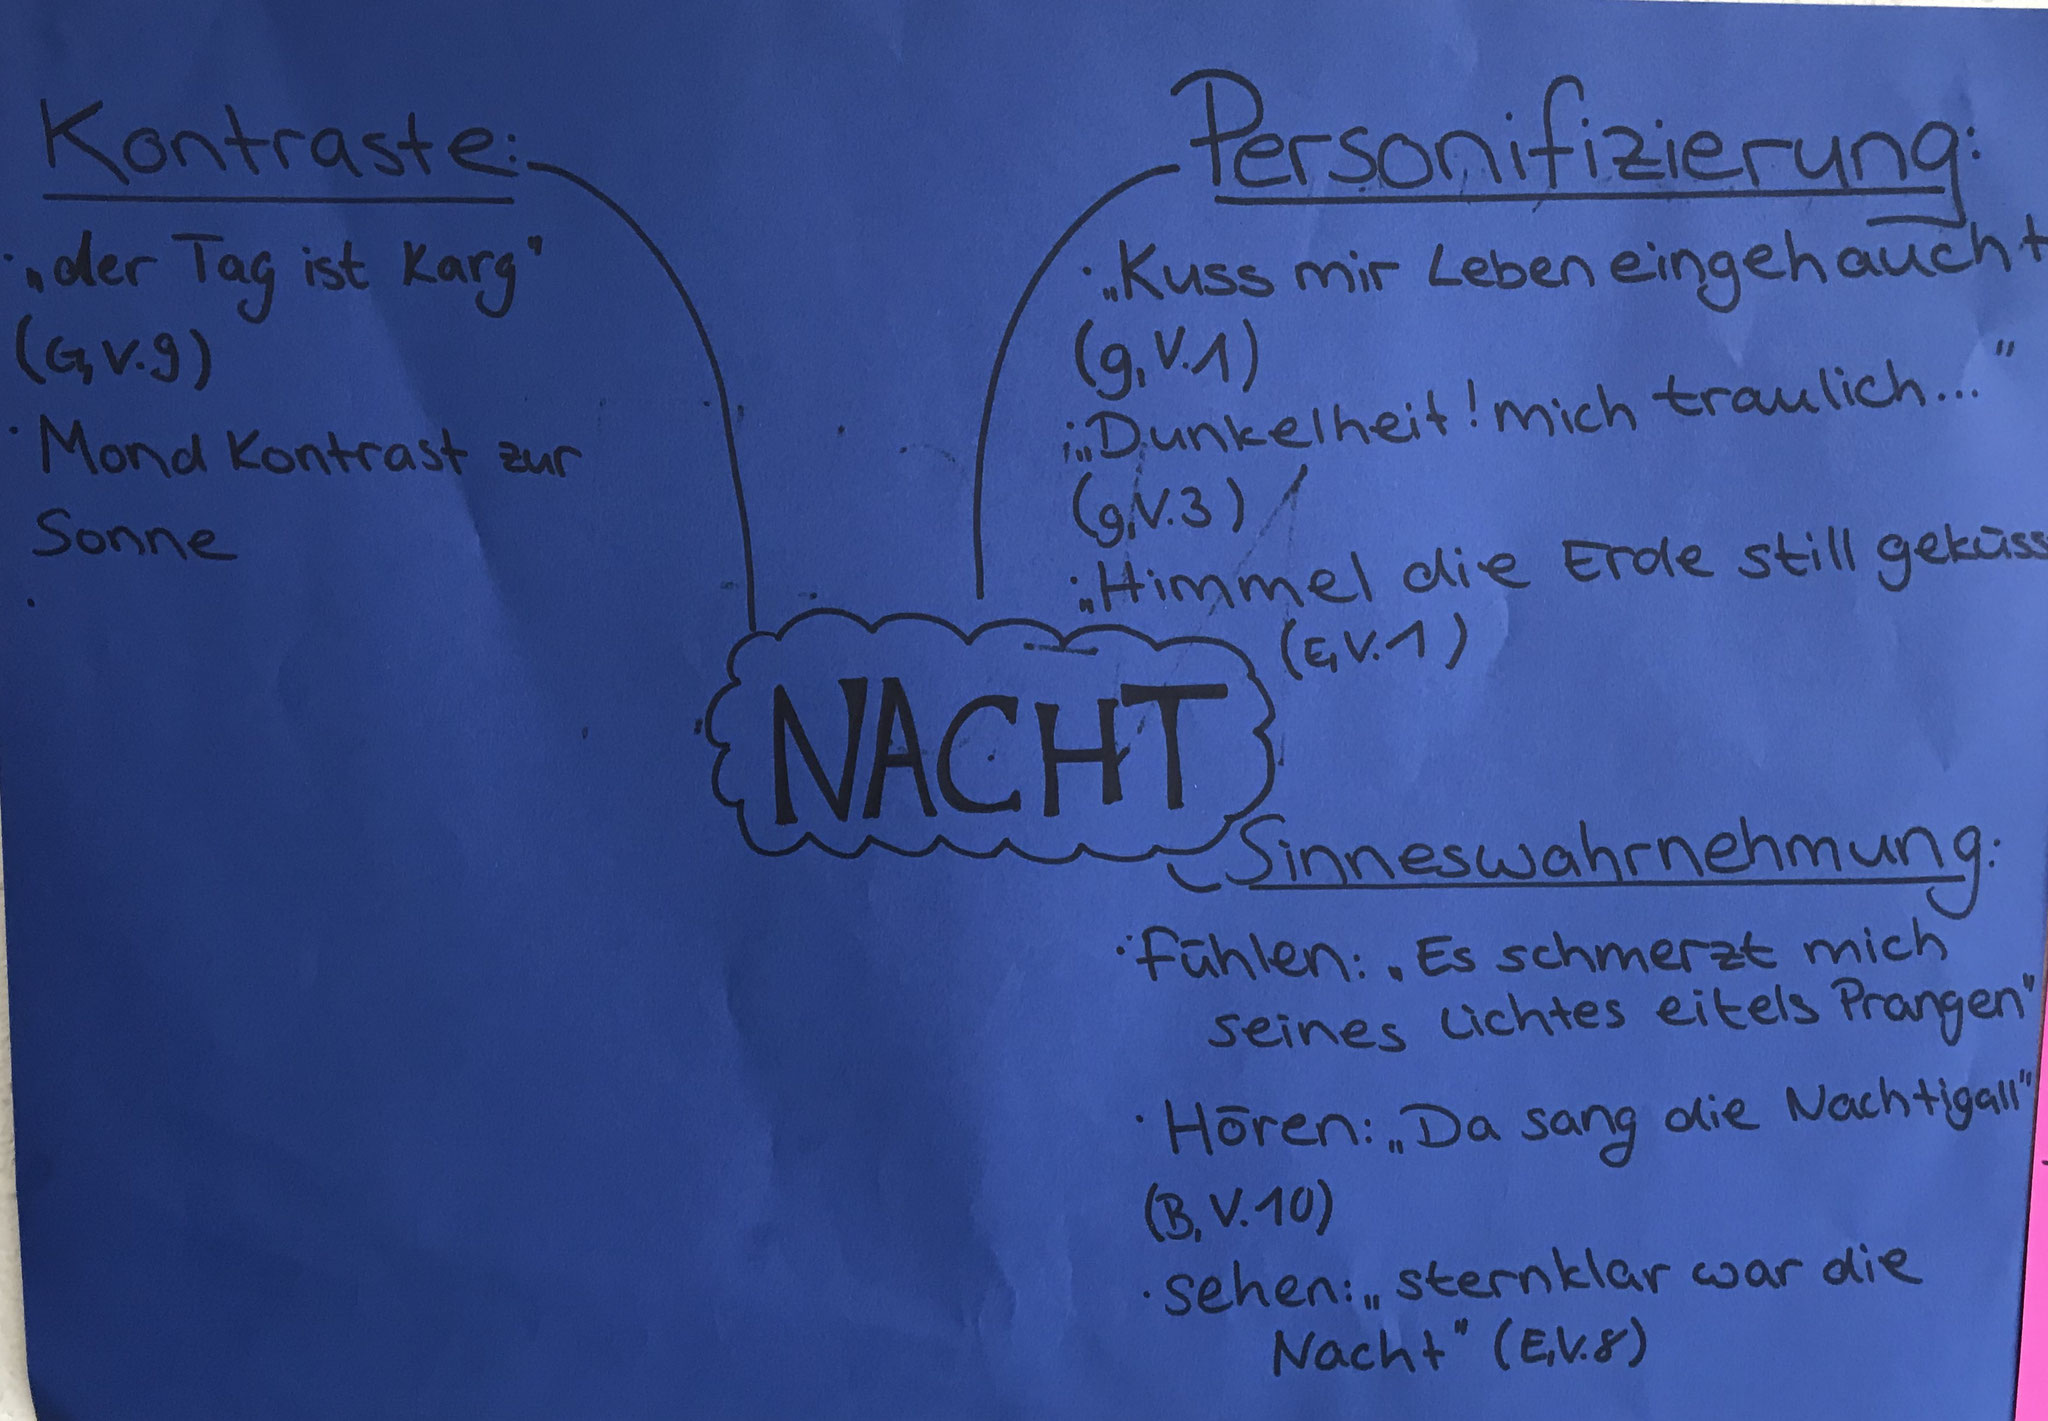 Kontraste:
„der Tag ist Karg"
(G, V.9)
Mond Kontrast zur
Sonne
Personifizierung:
„Kuss mir Leben eingehaucht
(g, V.1)
„Dunkelheit! mich traulich..."
(g, V.3)
„Himmel die Erde still geküss
(E, V.1)
NACHT
Sinneswahrnehmung:
fühlen: „Es schmerzt mich
seines Lichtes eitels Prangen"
Hören: „Da sang die Nachtigall"
(B, V.10)
sehen: „sternklar war die
Nacht" (E, V.8)